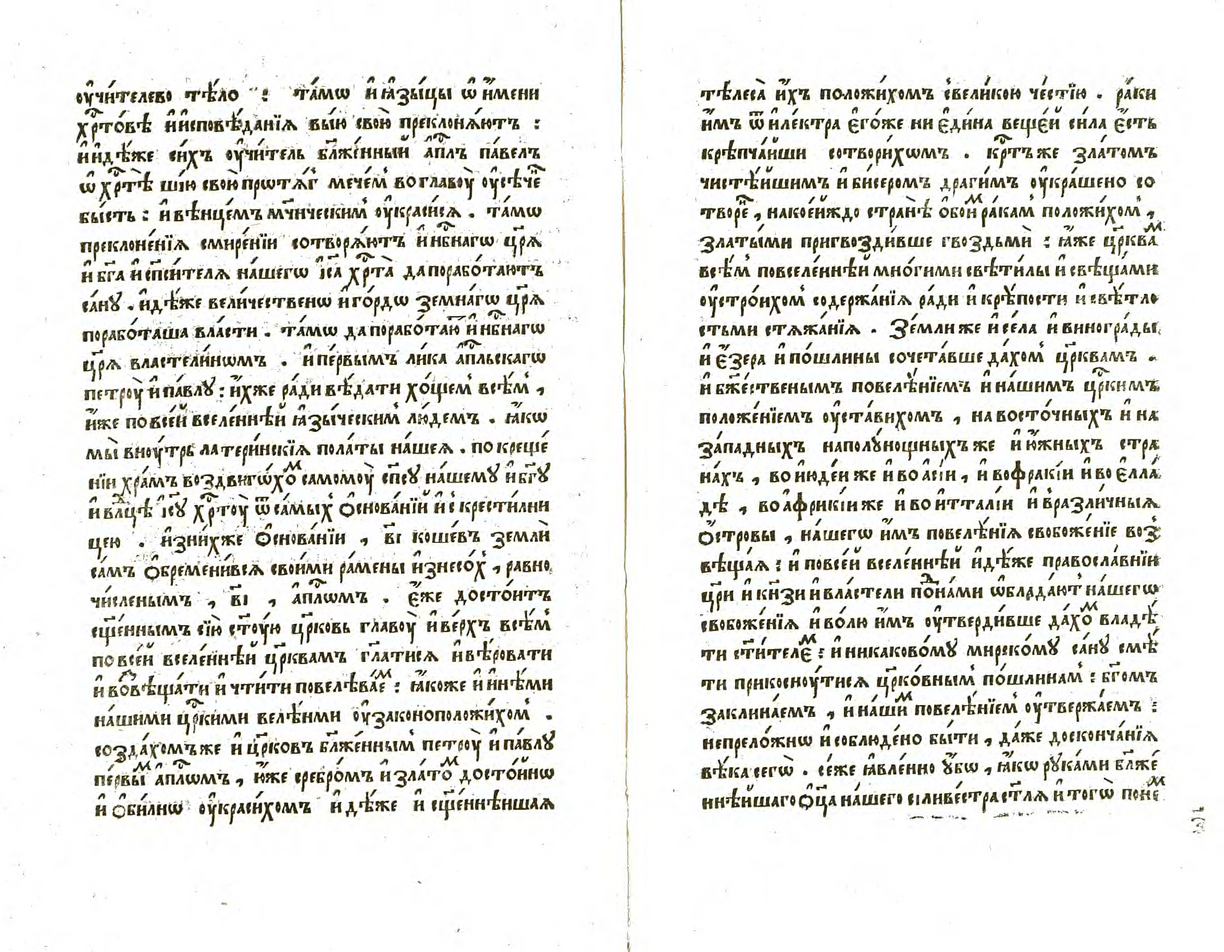 ᲂу҆чи́телево тѣ́ло : та́мѡ и҆ ꙗ҆зы́цы ѡ҆ и҆́мени
хрⷭ҇то́вѣ и҆ и҆сповѣ́данїѧ вы́ю свою̀ преклонѧ́ютъ :
и҆ и҆дѣ́же си́хъ ᲂу҆чи́тель бл҃же́нный а҆пⷭ҇лъ па́велъ
ѡ҆ хрⷭ҇тѣ̀ ши́ю свою̀ прѡтѧ́г мече́м во главоу̀ ᲂу҆сѣче́
бы́сть : и҆ вѣнце́мъ мч҃ническим ᲂу҆краси́сѧ . та́мѡ
преклоне́нїѧ смире́нїи сотворѧ́ютъ и҆ нбⷭ҇нагѡ цр҃ѧ̀
и҆ бг҃а и҆ сп҃си́телѧ на́шегѡ і҆са̀ хрⷭ҇та̀ да порабо́таютъ
са́нꙋ . и҆дѣ́же вели́чественѡ и҆ го́рдѡ земна́гѡ цр҃ѧ̀
порабо́таша вла́сти . та́мѡ да порабо́таю и҆ нбⷭ҇нагѡ
цр҃ѧ̀ властели́нѡмъ . и҆ пе́рвымъ ли́ка а҆пⷭ҇льскагѡ
петроу̀ и҆ па́влꙋ : и҆́хже ра́ди вѣ́дати хо́щем всѣ́м ,
и҆́же по все́й вселе́ннѣй ꙗ҆зы́ческим лю́дем . ꙗ҆́кѡ
мы̀ вноу́трь латери́нскїѧ пола́ты на́шеѧ . по креще́
нїи хра́мъ воздвиго́хоⷨ самомоу̀ сп҃сꙋ на́шемꙋ и҆ бг҃ꙋ
и҆ влⷣцѣ і҆сꙋ хрⷭ҇тоу̀ ѿ са́мых ѻ҆снова́нїй и҆ с крести́лни
цею . и҆ з ни́хже ѻ҆снова́нїи , в҃і ко́шевъ землѝ
са́мъ ѻ҆бремени́всѧ свои́ми ра́мены и҆знесо́х , ра́вно
чи́сленымъ , в҃і , а҆пⷭ҇лѡмъ . є҆́же досто́итъ
сщ҃е́ннымъ сїю̀ ст҃оу́ю цр҃ковь главоу̀ и҆ ве́рхъ всѣ́м
по все́й вселе́ннѣй цр҃квамъ гл҃атисѧ и҆ вѣ́ровати
и҆ во́звѣща́ти и҆ чти́ти повелѣва́еⷨ : ꙗ҆́коже и҆ и҆нѣ́ми
на́шими црⷭ҇кими велѣ́нми ᲂу҆законоположи́хом .
созда́хомъже и҆ цр҃ковъ бл҃же́нным петроу̀ и҆ па́влꙋ
пе́рвыⷨ а҆пⷭ҇лѡмъ , ю҆́же сребро́мъ и҆ зла́тоⷨ досто́йнѡ
и҆ ѻ҆би́лнѡ ᲂу҆краси́хомъ и҆дѣ́же и҆ сщ҃е́ннѣйшаѧ
тѣлеса̀ и҆́хъ положи́хомъ с вели́кою че́стїю . ра́ки
и҆̀мъ ѿ и҆ле́ктра є҆го́же ни є҆ди́на веще́й си́ла є҆́сть
крѣпча́йши сотвори́хѡмъ . крⷭ҇тъ же зла́томъ
чистѣ́йшимъ и҆ би́сером драги́мъ ᲂу҆кра́шено со
творе́ , на кое́йждо странѣ̀ ѻ҆бо́иⷨ ра́кам положи́хом ,
златы́ми пригвозди́вше гвоздьмѝ : ꙗ҆́же цр҃кваⷨ
всѣ́м повселе́ннѣй мно́гими свѣти́лы и҆ свѣща́ми
ᲂу҆стро́ихом содержа́нїѧ ра́ди и҆ крѣ́пости и҆ свѣ́тло
стьми стѧжа́нїѧ . Зе́мли же и҆ се́ла и҆ виногра́ды
и҆ є҆́зера и҆ по́шлины сочета́вше да́хом цр҃квамъ .
и҆ бж҃е́ственымъ повелѣ́нїемъ и҆ на́шимъ црⷭ҇кимъ
положе́нїемъ ᲂу҆ста́вихомъ , на восто́чныхъ и҆ на
за́падныхъ на полу́нощныхъже и҆ ю҆́жныхъ стра
на́хъ , во и҆юде́и же и҆ во а҆сі́и , и҆ во фракі́и и҆ во є҆лла́
дѣ , во а҆фрикі́и же и҆ во и҆тталі́и и҆ в разли́чныѧ
ѻ҆́стровы , на́шегѡ и҆̀мъ повелѣ́нїѧ свобоже́нїе воз
вѣща́ѧ : и҆ по все́й вселе́ннѣй и҆дѣ́же правосла́внїи
цр҃и и҆ кнѧ҃зи и҆ власте́ли поⷣ на́ми ѡ҆блада́ют на́шегѡ
свобоже́нїѧ и҆ во́лю и҆̀мъ ᲂу҆тверди́вше да́хоⷨ владѣ́
ти ст҃и́телеⷨ : и҆ никаково́мꙋ мирско́мꙋ са́нꙋ смѣ́
ти прикоснꙋ́тисѧ цр҃ко́вным по́шлинам : бг҃омъ
заклина́емъ , и҆ на́шиⷨ повелѣ́нїем ᲂу҆твержа́емъ :
непрело́жнѡ и҆ соблюде́но бы́ти , да́же до сконча́нїѧ
вѣ́ка сегѡ̀ . се́же ꙗ҆вле́нно ᲂу҆́бѡ , ꙗ҆́кѡ рꙋка́ми бл҃же́
ннѣ́йшаго ѻ҆ц҃а на́шего силиве́стра ст҃лѧ и҆ тогѡ̀ поне́ⷨ